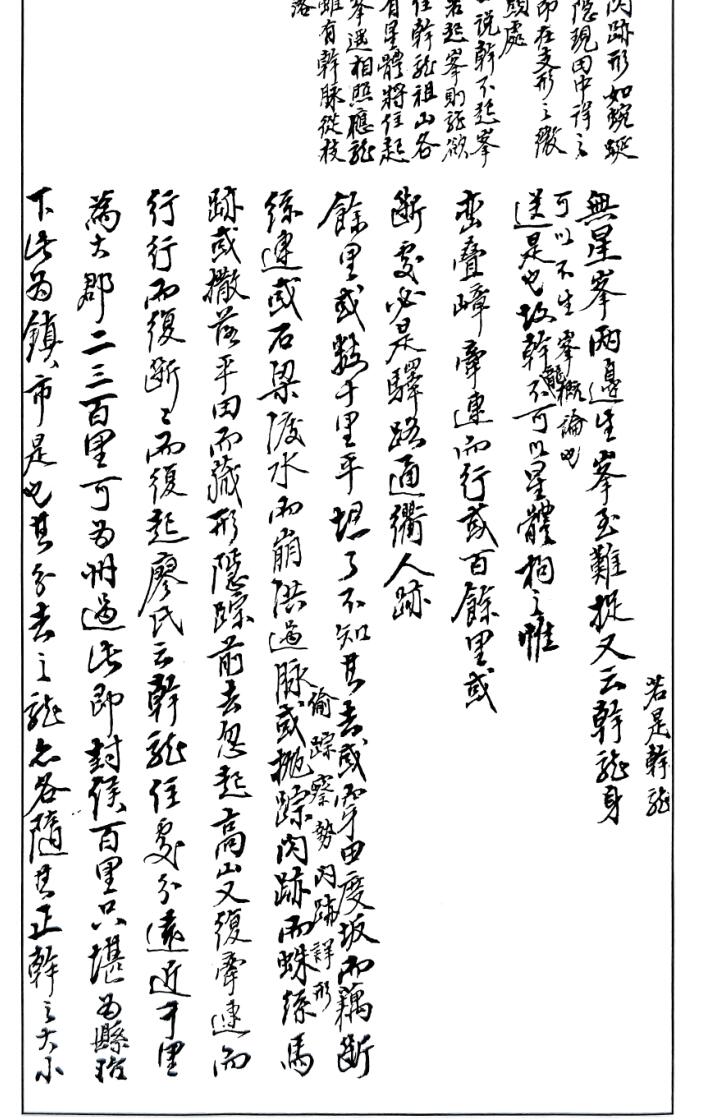 閃跡形如蜿蜒
隱現田中詳之
即在支形之微
頭處
說幹不起峯
若起峯則龍欲
住幹龍祖山各
有星體將住起
峯遥相照應龍
雖有幹脉從枝
落
若是幹龍
無星峯兩邊生峯至難捉又云幹龍身
可以不生峯概論也
送是也故幹龍不可以星體拘之惟
峦疊嶂牽連而行或百餘里或
斷處必是驛路通衢人跡
餘里或數十里平坦了不知其去或穿田度坂而藕斷
偷踪察勢閃跡詳形
絲連或石梁渡水而崩洪過脉或抛踪閃跡而蛛絲馬
跡或撒落平田而藏形隱踪前去忽起高山又復牽連而
行行而復斷斷而復起廖氏云幹龍住處分遠近千里
為大郡二三百里可為州過此即封侯百里只堪為縣治
下此為鎮市是也其分去之龍亦各隨其正幹之大小